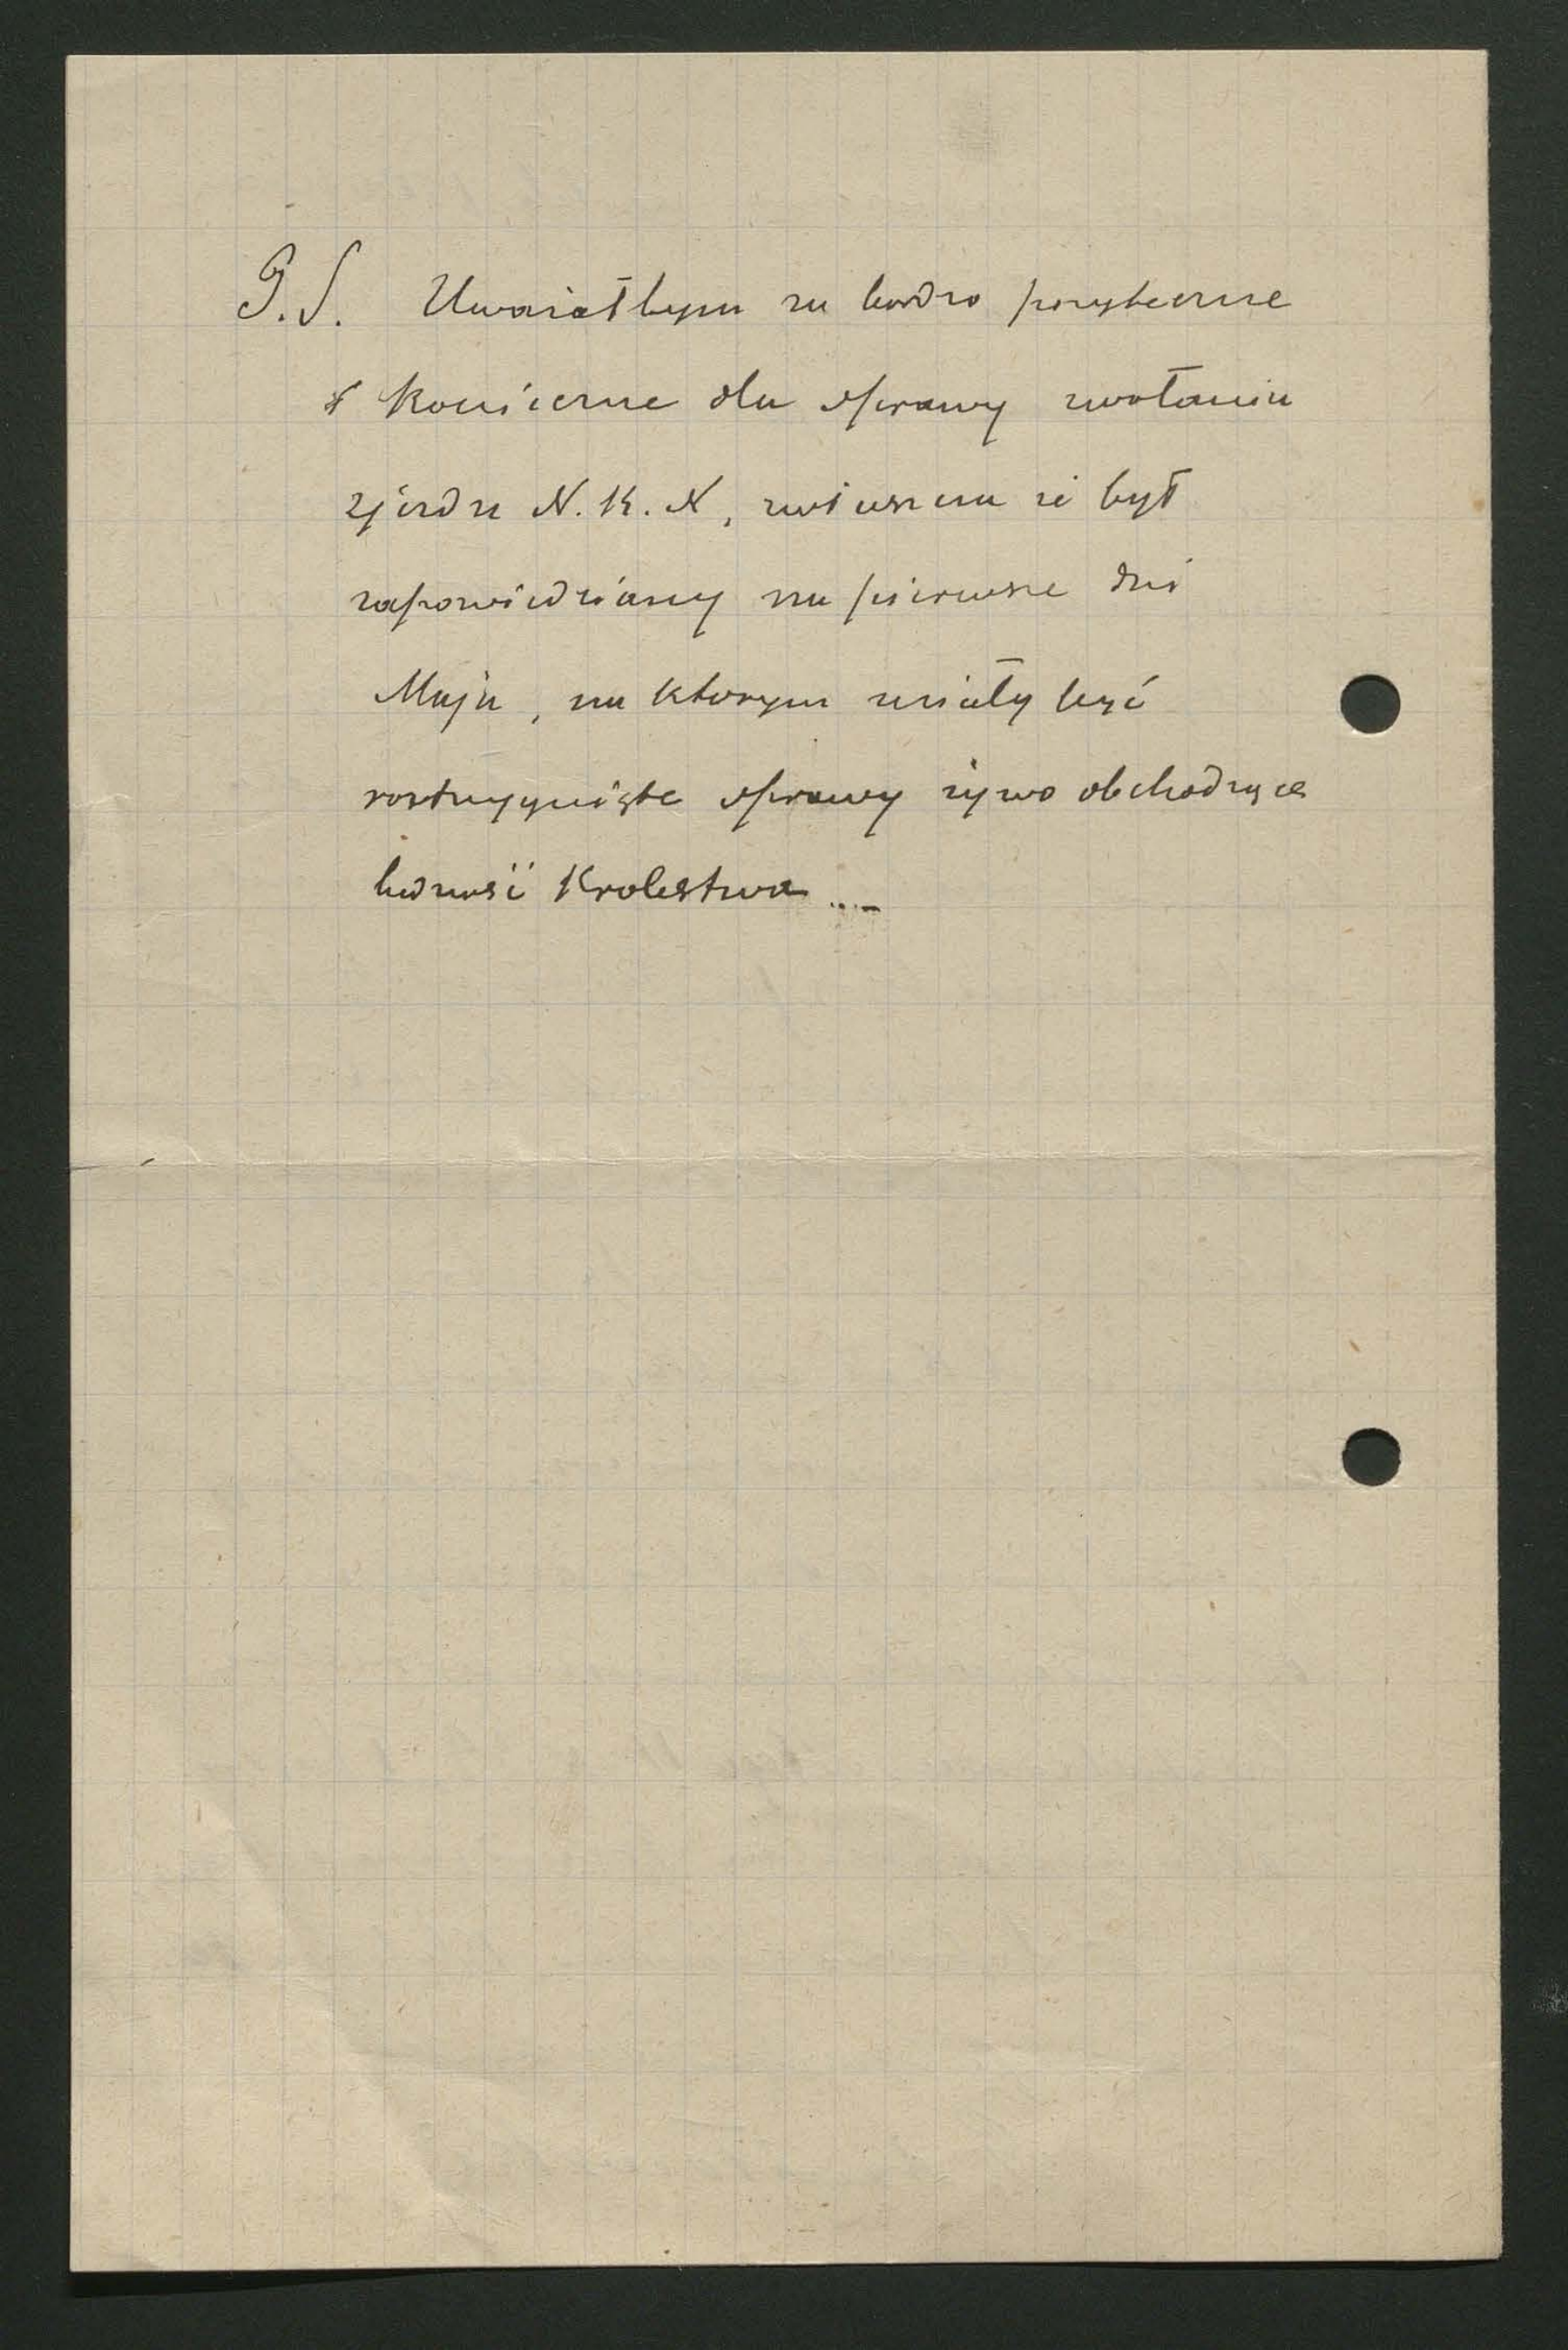 P.S. Uwazałbym za bardzo pozyteczne
i konieczne dla sprawy zwołania
zjazdu N.K.N, zwłaszcza ze był
zapowiedziany na pierwsze dni
Maja, na ktorym miały być
rostrzygnięte sprawy zywo obchodzące
ludność Krolestwa ...–